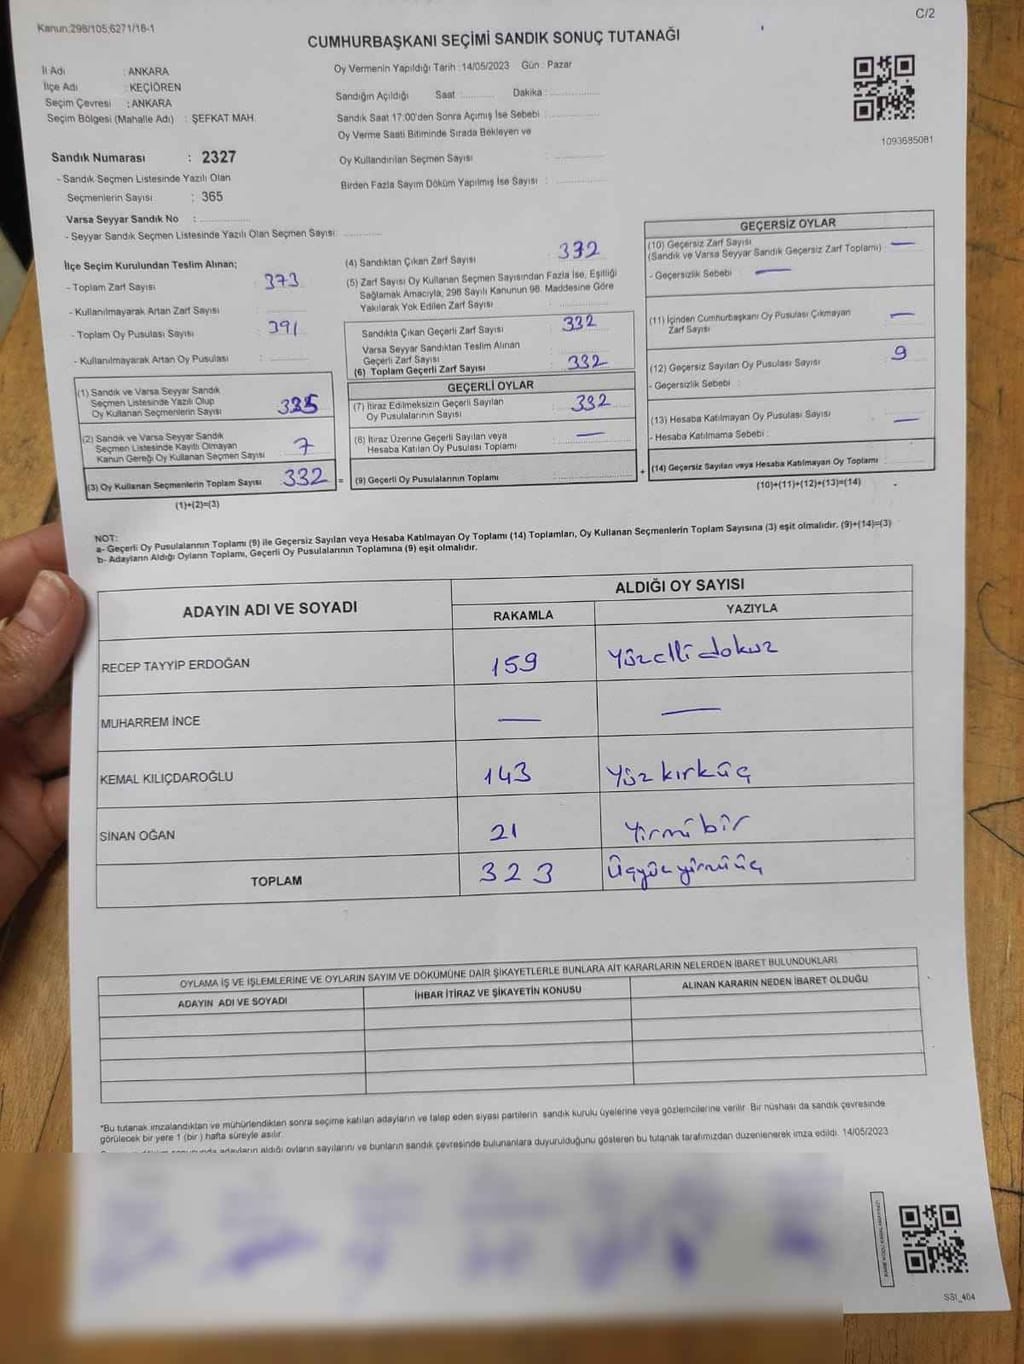 Kanun:298/105,6271/16-1
C/2
CUMHURBAŞKANI SEÇİMİ SANDIK SONUÇ TUTANAĞI
İl Adı : ANKARA
İlçe Adı : KEÇİÖREN
Seçim Çevresi : ANKARA
Seçim Bölgesi (Mahalle Adı) : ŞEFKAT MAH.
Oy Vermenin Yapıldığı Tarih : 14/05/2023 Gün : Pazar
Sandığın Açıldığı Saat : Dakika :
Sandık Saat 17:00'den Sonra Açımış İse Sebebi :
Oy Verme Saati Bitiminde Sırada Bekleyen ve
Oy Kullandırılan Seçmen Sayısı :
Birden Fazla Sayım Döküm Yapılmış İse Sayısı :
1093685081
Sandık Numarası : 2327
- Sandık Seçmen Listesinde Yazılı Olan
Seçmenlerin Sayısı : 365
Varsa Seyyar Sandık No :
- Seyyar Sandık Seçmen Listesinde Yazılı Olan Seçmen Sayısı:
İlçe Seçim Kurulundan Teslim Alınan;
- Toplam Zarf Sayısı 373
- Kullanılmayarak Artan Zarf Sayısı
- Toplam Oy Pusulası Sayısı 391
- Kullanılmayarak Artan Oy Pusulası :
(1) Sandık ve Varsa Seyyar Sandık
Seçmen Listesinde Yazılı Olup
Oy Kullanan Seçmenlerin Sayısı 325
(2) Sandık ve Varsa Seyyar Sandık
Seçmen Listesinde Kayıtlı Olmayan
Kanun Gereği Oy Kullanan Seçmen Sayısı 7
(3) Oy Kullanan Seçmenlerin Toplam Sayısı 332 =
(1)+(2)=(3)
(4) Sandıktan Çıkan Zarf Sayısı 332
(5) Zarf Sayısı Oy Kullanan Seçmen Sayısından Fazla İse, Eşitliği
Sağlamak Amacıyla, 298 Sayılı Kanunun 98. Maddesine Göre
Yakılarak Yok Edilen Zarf Sayısı
Sandıkta Çıkan Geçerli Zarf Sayısı 332
Varsa Seyyar Sandıktan Teslim Alınan
Geçerli Zarf Sayısı
(6) Toplam Geçerli Zarf Sayısı 332
GEÇERLİ OYLAR
(7) İtiraz Edilmeksizin Geçerli Sayılan
Oy Pusulalarının Sayısı 332
(8) İtiraz Üzerine Geçerli Sayılan veya
Hesaba Katılan Oy Pusulası Toplamı —
(9) Geçerli Oy Pusulalarının Toplamı +
GEÇERSİZ OYLAR
(10) Geçersiz Zarf Sayısı
(Sandık ve Varsa Seyyar Sandık Geçersiz Zarf Toplamı) —
- Geçersizlik Sebebi —
(11) İçinden Cumhurbaşkanı Oy Pusulası Çıkmayan
Zarf Sayısı —
(12) Geçersiz Sayılan Oy Pusulası Sayısı 9
- Geçersizlik Sebebi :
(13) Hesaba Katılmayan Oy Pusulası Sayısı —
- Hesaba Katılmama Sebebi :
(14) Geçersiz Sayılan veya Hesaba Katılmayan Oy Toplamı
(10)+(11)+(12)+(13)=(14)
NOT:
a- Geçerli Oy Pusulalarının Toplamı (9) ile Geçersiz Sayılan veya Hesaba Katılmayan Oy Toplamı (14) Toplamları, Oy Kullanan Seçmenlerin Toplam Sayısına (3) eşit olmalıdır. (9)+(14)=(3)
b- Adayların Aldığı Oyların Toplamı, Geçerli Oy Pusulalarının Toplamına (9) eşit olmalıdır.
ADAYIN ADI VE SOYADI
ALDIĞI OY SAYISI
RAKAMLA YAZIYLA
RECEP TAYYİP ERDOĞAN 159 Yüzelli dokuz
MUHARREM İNCE — —
KEMAL KILIÇDAROĞLU 143 Yüz kırküç
SİNAN OĞAN 21 Yirmi bir
TOPLAM 323 Üçyüz yirmi üç
OYLAMA İŞ VE İŞLEMLERİNE VE OYLARIN SAYIM VE DÖKÜMÜNE DAİR ŞİKAYETLERLE BUNLARA AİT KARARLARIN NELERDEN İBARET BULUNDUKLARI
ADAYIN ADI VE SOYADI İHBAR İTİRAZ VE ŞİKAYETİN KONUSU ALINAN KARARIN NEDEN İBARET OLDUĞU
*Bu tutanak imzalandıktan ve mühürlendikten sonra seçime katılan adayların ve talep eden siyasi partilerin sandık kurulu üyelerine veya gözlemcilerine verilir. Bir nüshası da sandık çevresinde
görülecek bir yere 1 (bir ) hafta süreyle asılır.
adayların aldığı oyların sayılarını ve bunların sandık çevresinde bulunanlara duyurulduğunu gösteren bu tutanak tarafımızdan düzenlenerek imza edildi. 14/05/2023
SSI_404